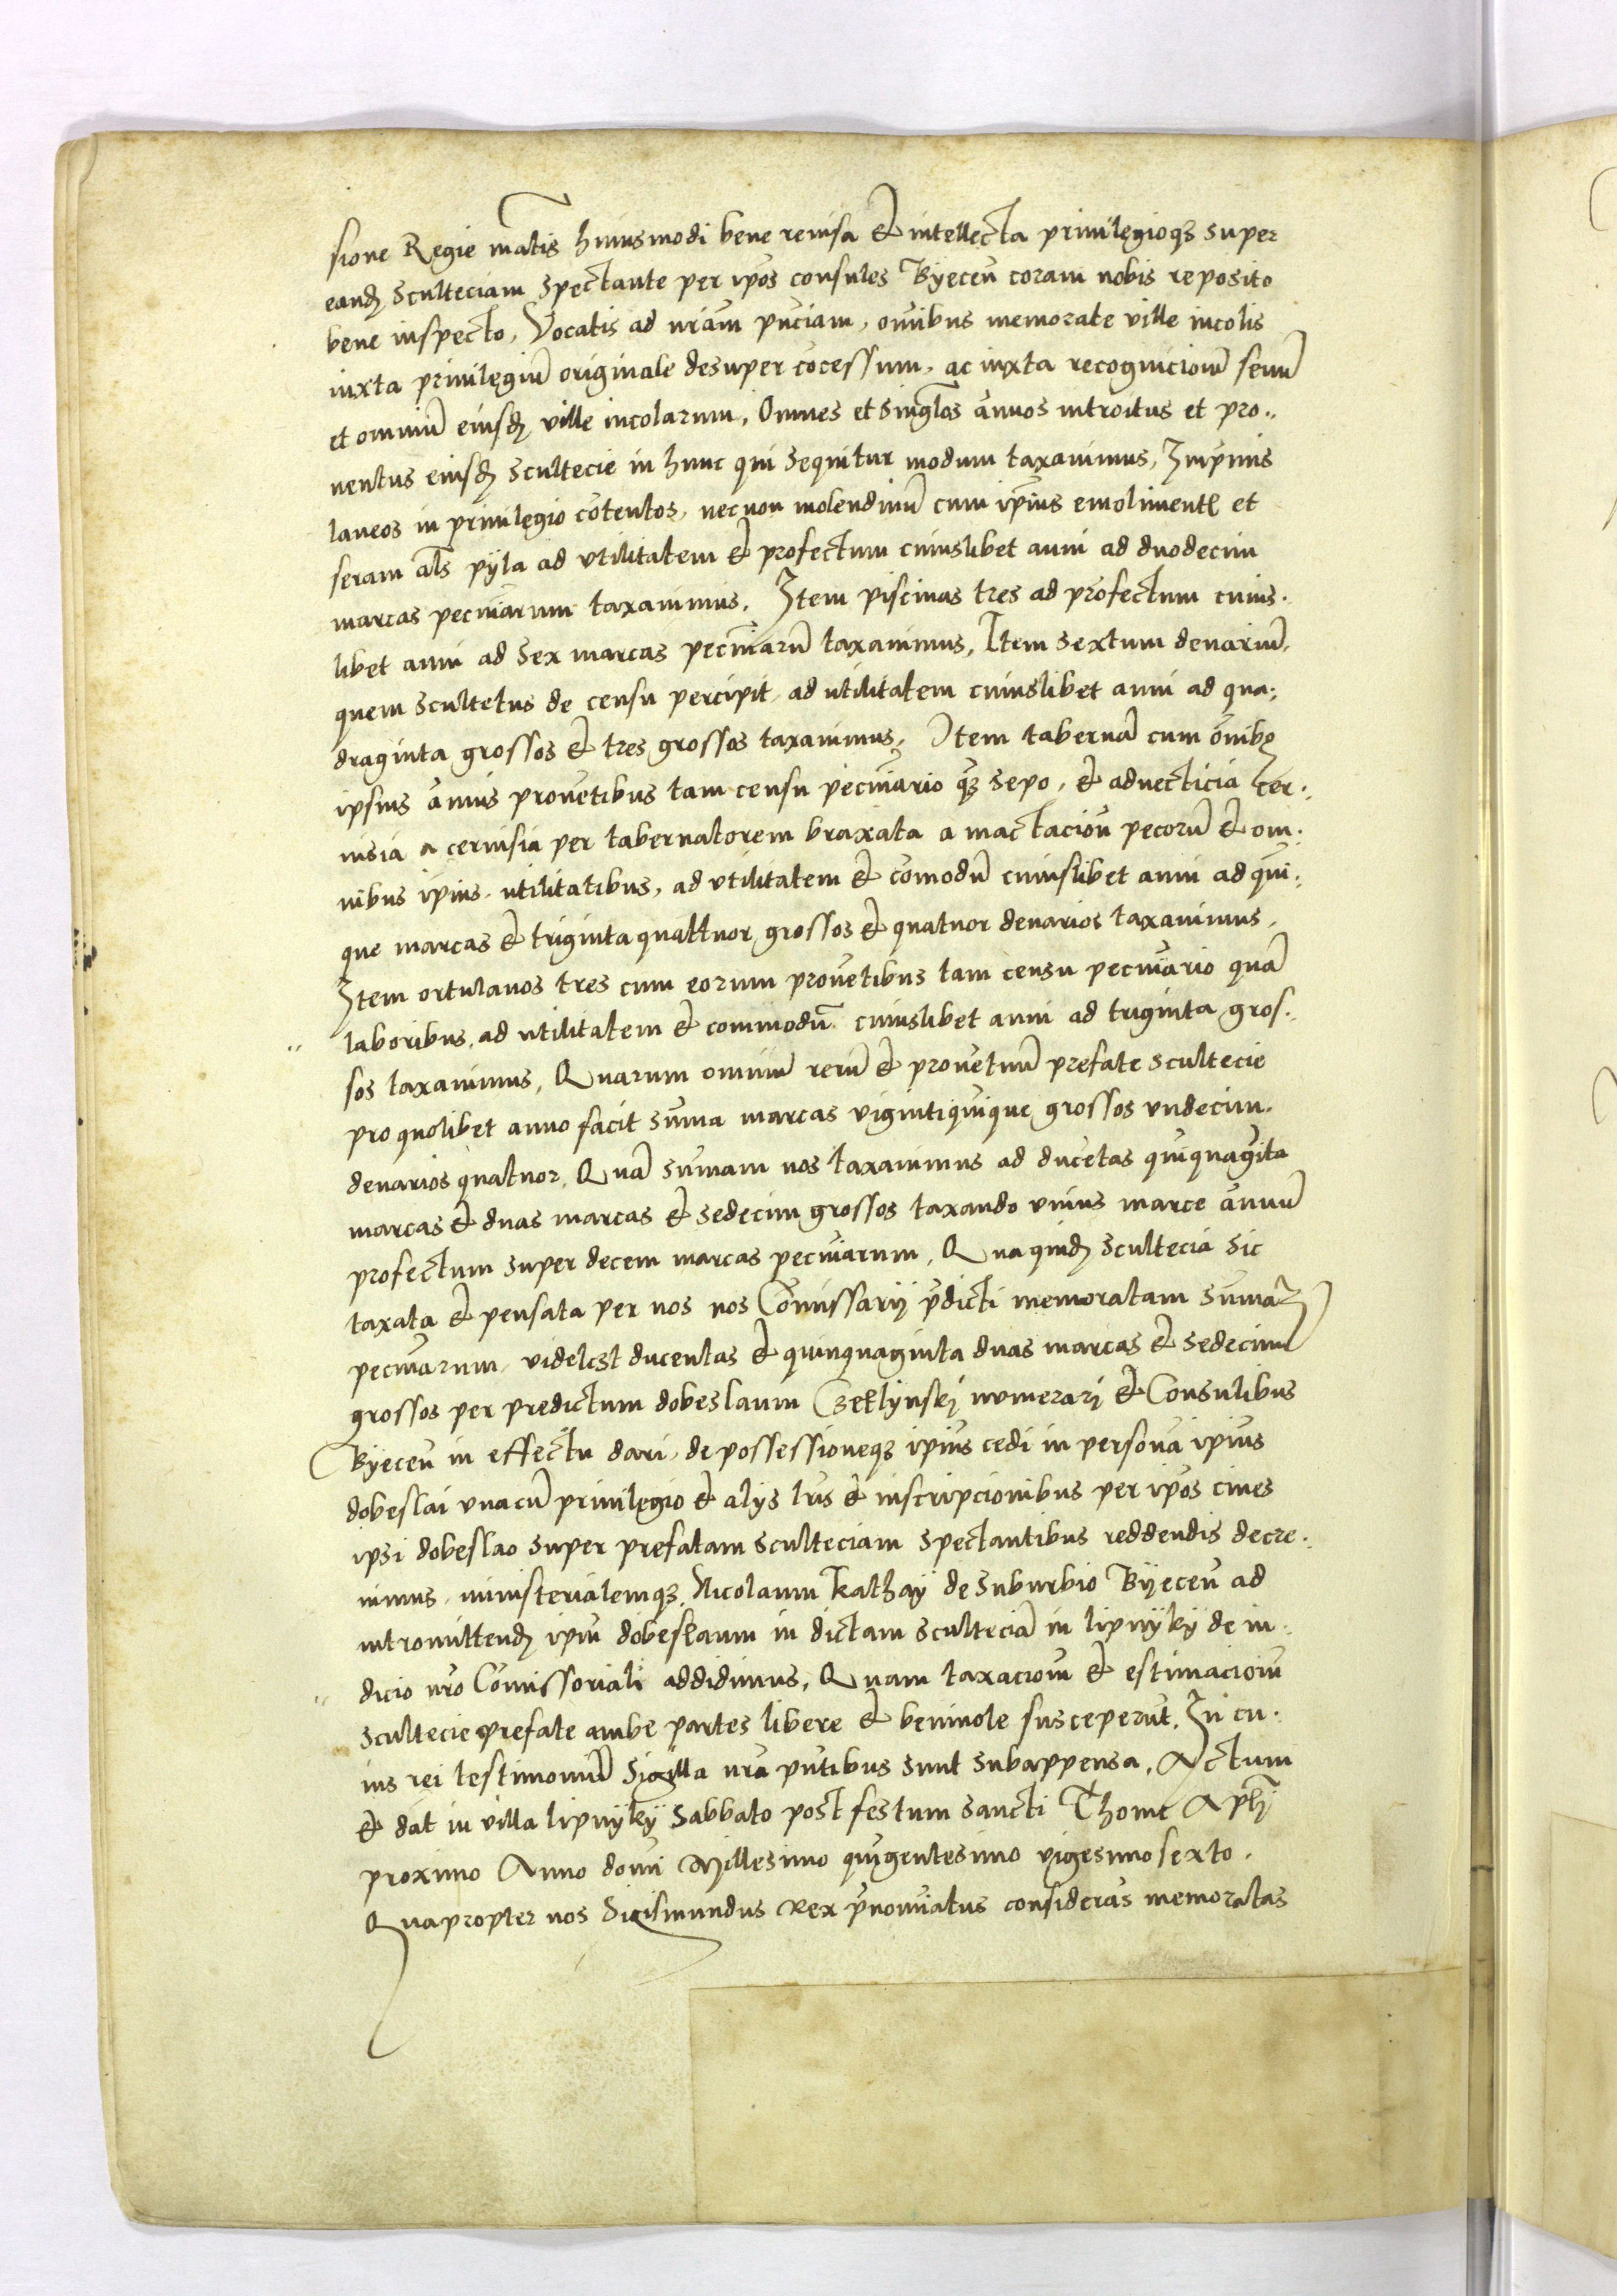 sione Regie maͭtis huiusmodi bene reuisa et intellecta priuilegioqȝ super
eandꝫ sculteciam spectante per ip̄os consules Byeceñ coram nobis reposito
bene inspecto, Vocatis ad nr̄am pn̄ciam, om̄ibus memorate ville incolis
iuxta priuilegiū originale desuper cōcessum, ac iuxta recognicionē senū
et omniū eiusdꝫ ville incolarum, Omnes et singl̄os annuos introitus et pro..
uentus eiusdꝫ scultecie in hunc qui sequitur modum taxauimus, Inprimis
laneos in priuilegio cōtentos, necnon molendinū cum ip̄ius emolimentꝭ et
serram al̄s pyla ad vtilitatem et profectum cuiuslibet anni ad duodecim
marcas pecuniarum taxauimus, Item piscinas tres ad profectum cuius.
libet anni ad sex marcas pecuniarū taxauimus, Item sextum denariū,
quem scultetus de censu percipit, ad utilitatem cuiuslibet anni ad qua.,
draginta grossos et tres grossos taxauimus, Item tabernā cum ōnibꝫ
ipsius annuis prouētibus tam censu pecūiario qꝫ sepo, et aduecticia cer.,
uisia a ceruisia per tabernatorem braxata a mactacioñ pecorū et om.,
nibus ip̄ius utilitatibus, ad vtilitatem et cōmodū cuiuslibet anni ad qui.,
que marcas et triginta quattuor grossos et quatuor denarios taxauimus,
Item ortulanos tres cum eorum prouētibus tam censu pecūiario quā
laboribus, ad utilitatem et commodū cuiuslibet anni ad triginta gros..
sos taxauimus, Quarum omniū rerū et prouētuū prefate scultecie
pro quolibet anno facit sūma marcas vigintiquīque grossos vndecim.
denarios quatuor, Quā sūmam nos taxauimus ad ducētas quīquagīta
marcas et duas marcas et sedecim grossos taxando vnius marce annuū
profectum super decem marcas pecūiarum, Qua quidꝫ scultecia sic
taxata et pensata per nos nos Cōmissarij p̄dicti memoratam sūmaꝫ
pecūiarum videlꝫt ducentas et quinquaginta duas marcas et sedecim
grossos per predictum dobeslaum Czetlynskj numerarj et Consulibus
Byeceñ in effectu dari, de possessioneqꝫ ip̄ius cedi in persona ip̄ius
dobeslai vnacū priuilegio et alijs lr̄is et inscripcionibus per ip̄os ciues
ipsi dobeslao super prefatam sculteciam spectantibus reddendis decre.,
uimus, ministerialemqꝫ Nicolaum Kathay de suburbio Byeceñ ad
intromittendꝫ ip̄m dobeslaum in dictam sculteciā in lipnyky de iu.,
dicio nr̄o Cōmissoriali addidimus, Quam taxacioñ et estimacioñ
scultecie prefate ambe partes libere et beniuole susceperūt, In cu.
ius rei testimoniū Sigilla nr̄a pn̄tibus sunt subappensa, Actum
et dat̄ in villa lipnyky Sabbato post festum sancti Thome Apl̄i
proximo Anno domi Millesimo quīgentesimo vigesimosexto.
Quapropter nos Sigismundus Rex p̄nomīatus considerās memoratas